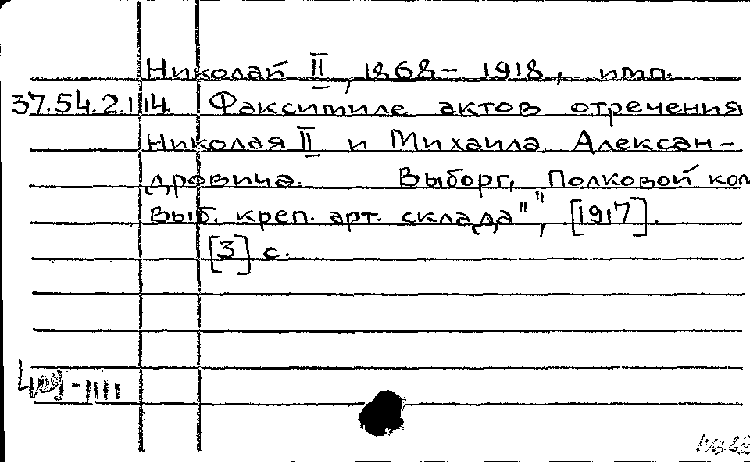 Николай II, 1868-1918, имп.
37.54.2.114. Факсимиле актов отречения
Николая II и Михаила Алексан-
дровича. Выборг, Полковой ком
Выб. креп. арт. склада"", [1917].
[3] с.